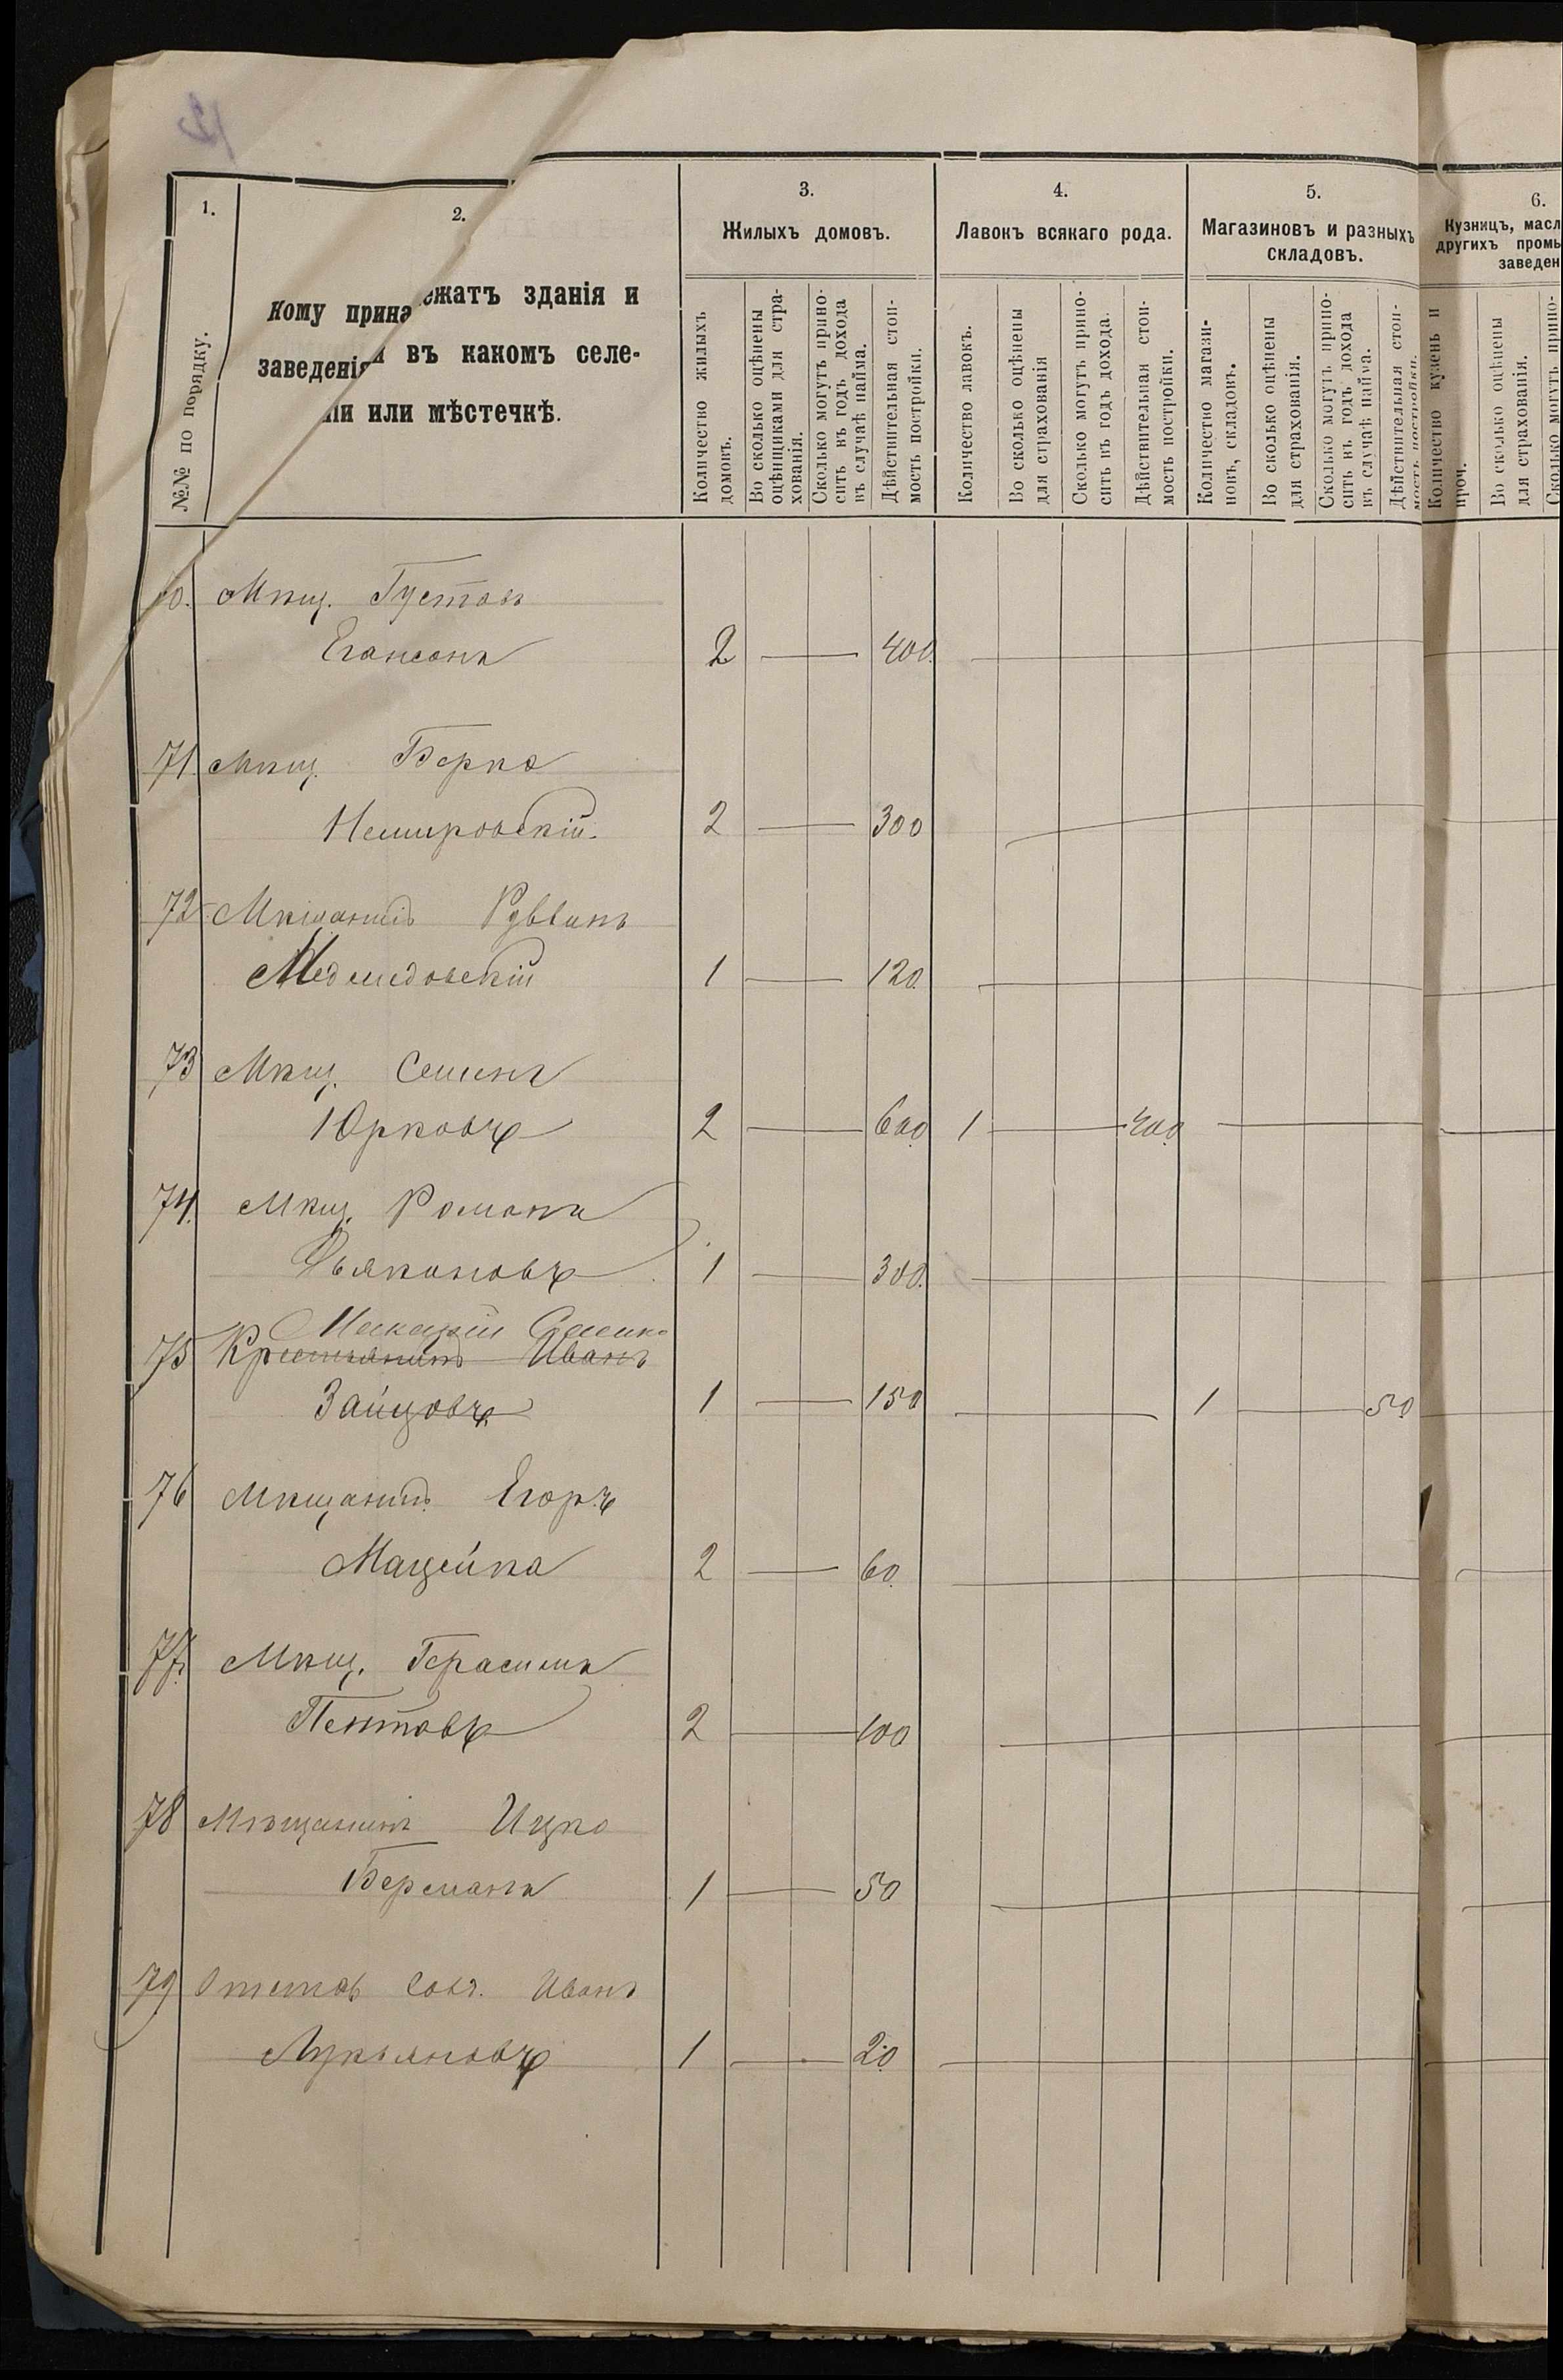 1.
2.
3.
4.
5.
6.
№№ по порядку.
Кому прина ежатъ зданія и
заведенія въ какомъ селе-
ніи или мѣстечкѣ.
Жилыхъ домовъ.
Лавокъ всякаго рода.
Магазиновъ и разныхъ
складовъ.
Кузницъ, масл
другихъ промы
заведен
Количество жилыхъ
домовъ.
Во сколько оцѣнены
оцѣнщиками для стра-
хованія.
Сколько могутъ прино-
сить въ годъ дохода
въ случаѣ найма.
Дѣйствительная стои-
мость постройки.
Количество лавокъ.
Во сколько оцѣнены
для страхованія
Сколько могутъ прино-
сить въ годъ дохода.
Дѣйствительная стои-
мость постройки.
Количество магази-
новъ, складовъ.
Во сколько оцѣнены
для страхованія.
Сколько могутъ прино-
сить въ годъ дохода
въ случаѣ найма.
Дѣйствительная стои-
мость постройки.
Количество кузень и
проч.
Во сколько оцѣнены
для страхованія.
Сколько могутъ прино-
0. Мѣщ. Густавъ
Егансонъ 2 — 400.
71. Мѣщ. Берка
Немировскій. 2 — 300
72. Мѣщанинъ Рувинъ
Медведовскій 1 — 120.
73 Мѣщ. Семенъ
Юрковъ 2 — 600 1 — 400
74. Мѣщ. Романъ
Дьяконовъ 1 — 300.
Макарій
75 Крестьянинъ Иванъ
Зайцовъ 1 — 150 1 — 50
76 Мѣщанинъ Егоръ
Мацейка 2 — 60.
77. Мѣщ. Герасимъ
Пентовъ 2 — 100
78 Мѣщанинъ Ицко
Берманъ 1 — 50
79 Отстав Иванъ
Лукьяновъ 1 — 20